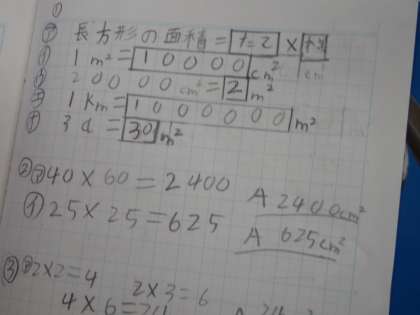 ①
㋐ 長方形の面積=たて×横
㋑ 1m²=10000cm² cm
㋒ 20000cm²=2m²
㋓ 1km=1000000m²
㋔ 3a=30m²
②㋐40×60=2400 A 2400cm²
㋑25×25=625 A 625cm²
③㋐2×2=4 2×3=6
4×6=24